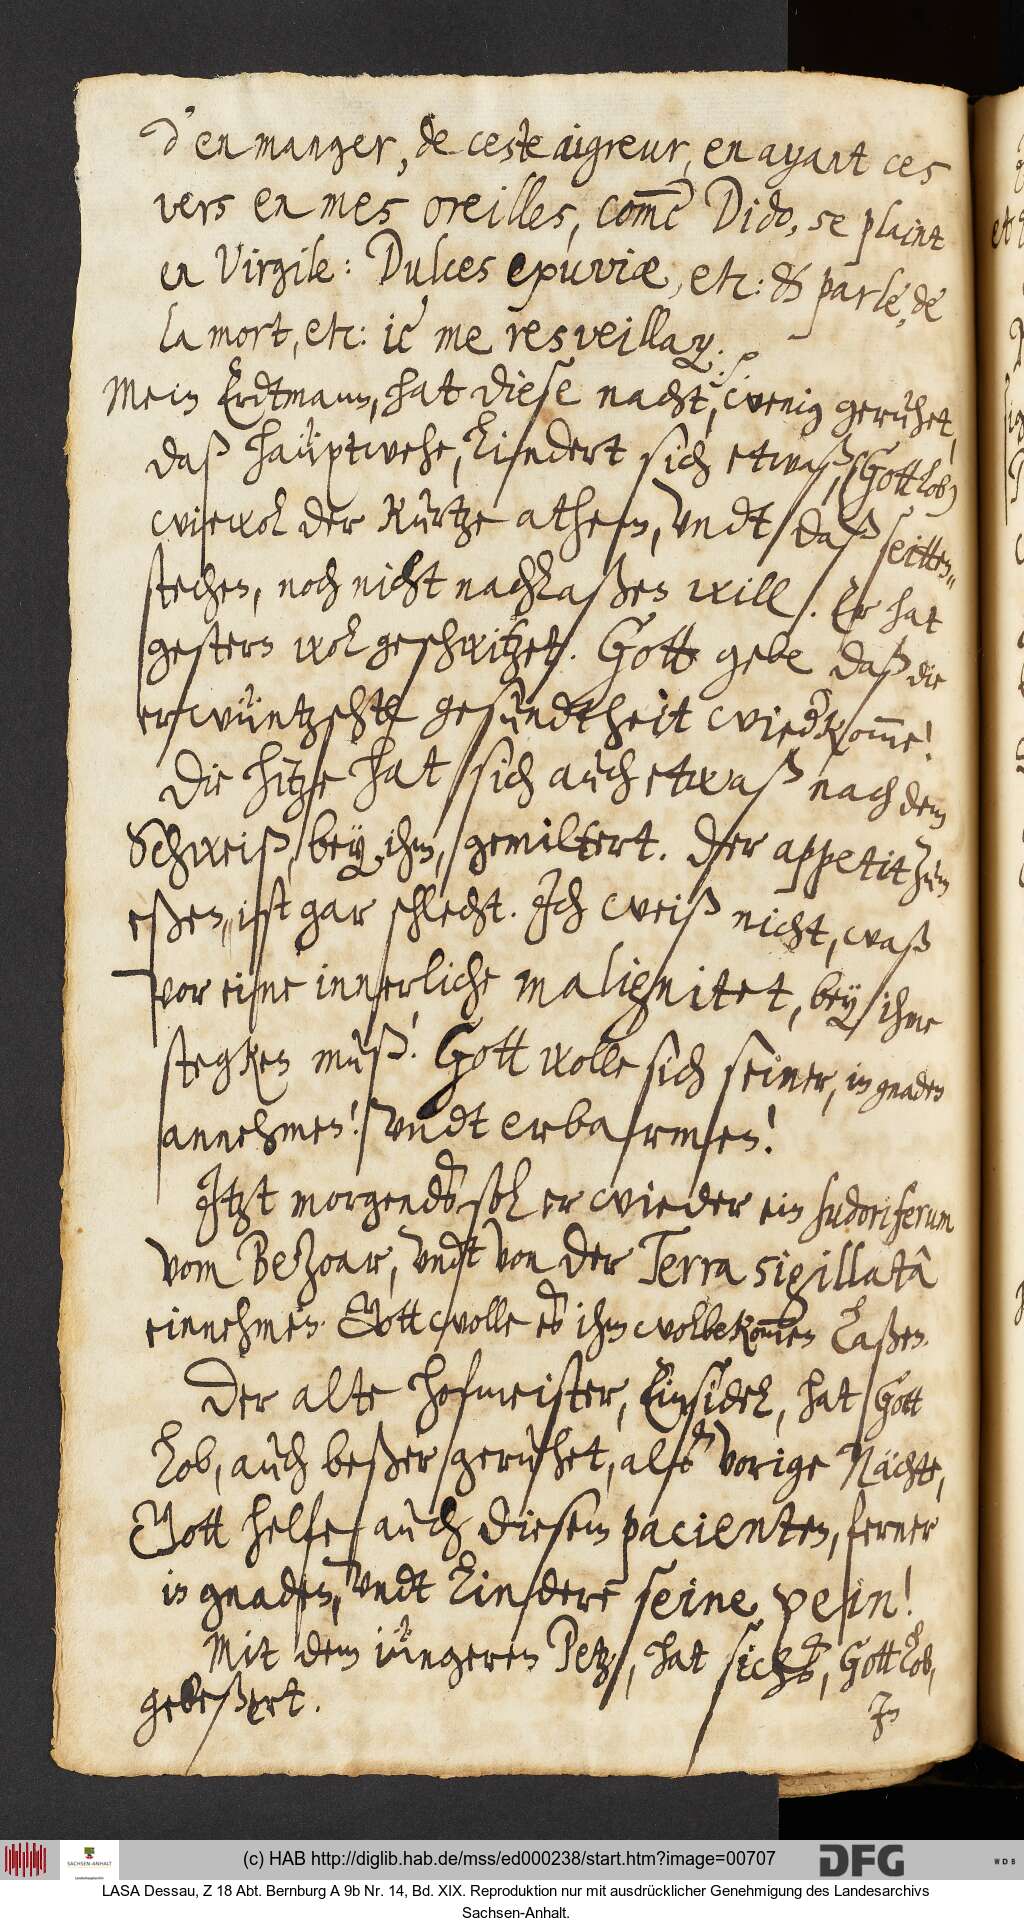 d'en manger, de ceste aigreur, en ayant ces
vers en mes oreilles, com̃e Dido, se plaint
en Virgile: Dulces exuviæ, etc: & parle, de
la mort, etc: ie me resveillay.
Mein Erdtmann, hat diese nacht, wenig geruhet,
daß haüptwehe, lindert sich etwaß, (Gott lob)
wiewol der kurtze athem, undt daß seitten„
stechen, noch nicht nachlaßen will. Er hat
gestern wol geschwitzet. Gott gebe daß die
erwüntzschte gesundtheit wiederkom̃e!
Die hitze hat sich auch etwaß nach dem
Schweiß, bey ihm, gemiltert. Der appetit zum
eßen, ist gar schlecht. Ich weiß nicht, waß
vor eine innerliche malignitet, bey ihme
stegken muß! Gott wolle sich seiner, in gnaden
annehmen! undt erbarmen!
Itzt morgends sol er wieder ein sudoriferum
vom Bezoar, undt von der Terra sigillatâ
einnehmen. Gott wolle es ihm wolbekom̃en laßen.
Der alte hofmeister, Einsidel, hat Gott
lob, auch beßer geruhet, als die vorige Nächte,
Gott helfe auch diesem pacienten, ferner
in gnaden, undt lindere seine pein!
Mit dem iüngeren Petz, hat sichs, Gott lob,
gebeßert.
In
(c) HAB http://diglib.hab.de/mss/ed000238/start.htm?image=00707
SACHSEN-ANHALT
DFG
WDB
LASA Dessau, Z 18 Abt. Bernburg A 9b Nr. 14, Bd. XIX. Reproduktion nur mit ausdrücklicher Genehmigung des Landesarchivs
Sachsen-Anhalt.